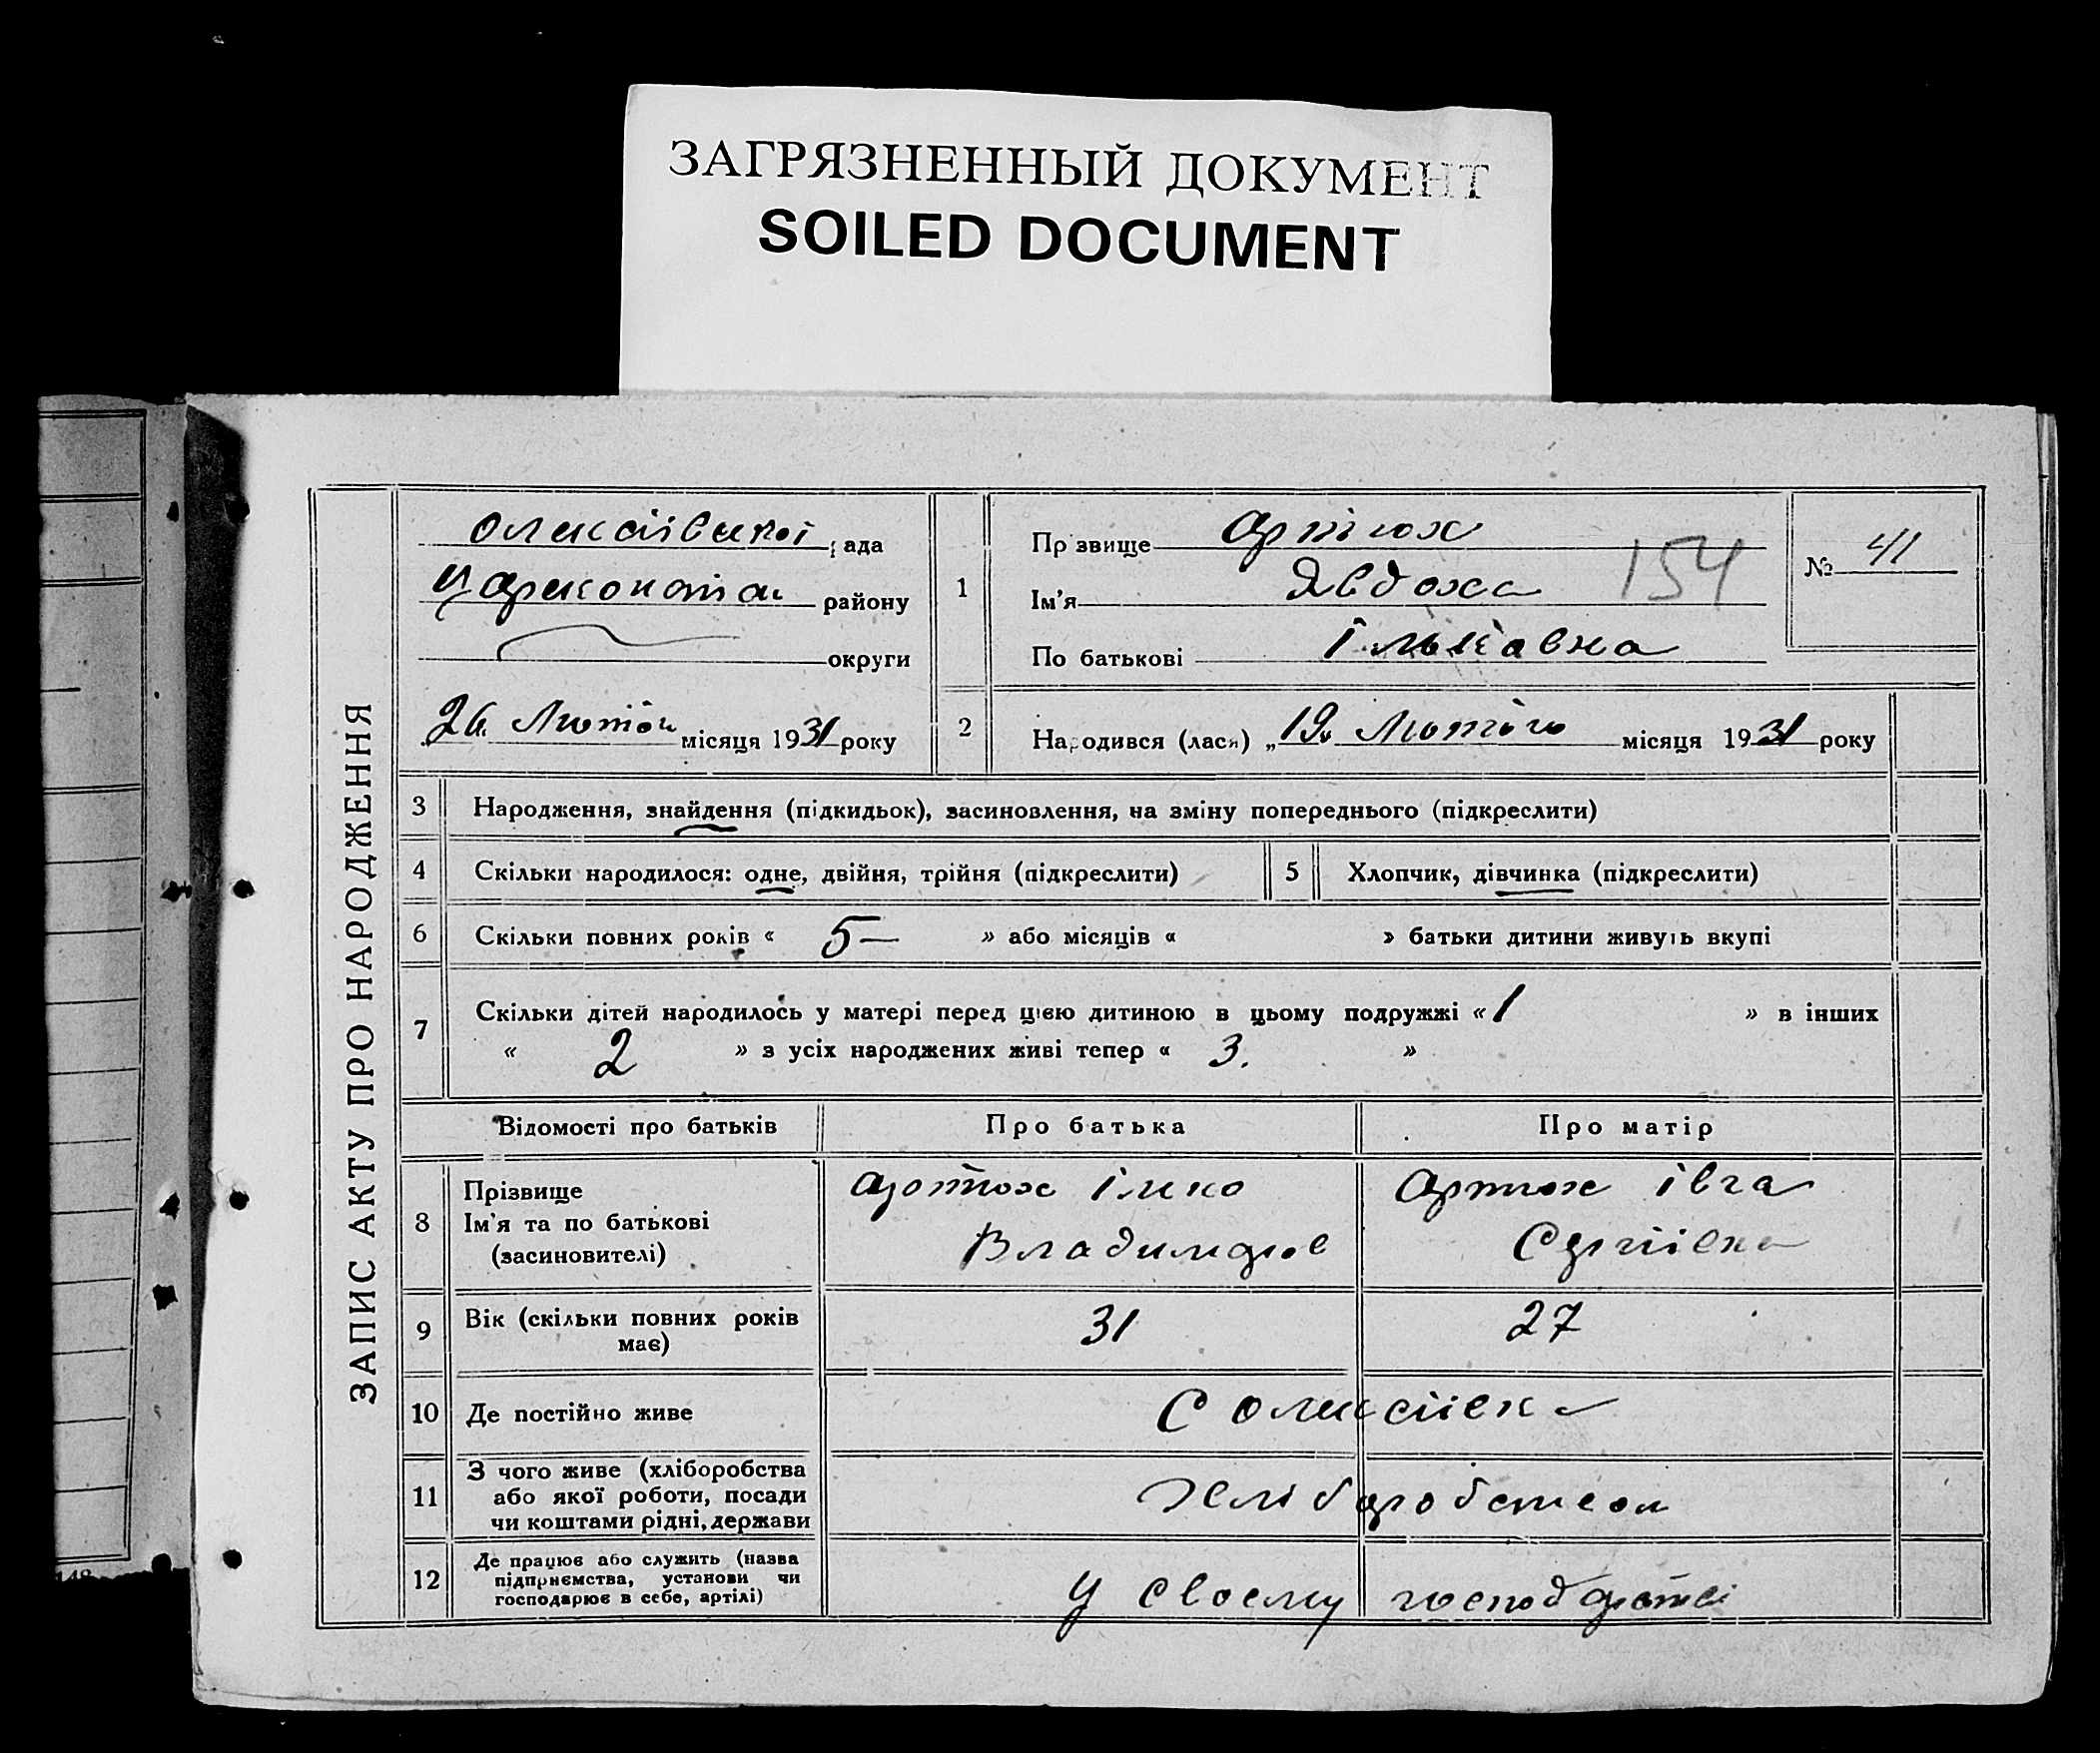 ЗАГРЯЗНЕННЫЙ ДОКУМЕНТ
SOILED DOCUMENT
ЗАПИС АКТУ ПРО НАРОДЖЕННЯ
Олексіївської рада
району
округи
26 Лютого місяця 1931 року
1
Прізвище Артюх
Ім'я Явдоха
По батькові Ільковна
154
№ 41
2 Народився (лася) „19 Лютого місяця 1931 року
3 Народження, знайдення (підкидьок), засиновлення, на зміну попереднього (підкреслити)
4 Скільки народилося: одне, двійня, трійня (підкреслити)
5 Хлопчик, дівчинка (підкреслити)
6 Скільки повних років « 5– » або місяців « » батьки дитини живуть вкупі
7 Скільки дітей народилось у матері перед цією дитиною в цьому подружжі « 1 » в інших
« 2 » з усіх народжених живі тепер « 3. »
Відомості про батьків Про батька Про матір
8 Прізвище
Ім'я та по батькові
(засновителі)
Артюх Ілько
Владимиров
Артюх Івга
Сергіївна
9 Вік (скільки повних років
має)
31
27
10 Де постійно живе
С Олексіївка
11 З чого живе (хліборобства
або якої роботи, посади
чи коштами рідні, держави
Хліборобством
12 Де працює або служить (назва
підприємства, установи чи
господарює в себе, артілі)
У своєму господарстві